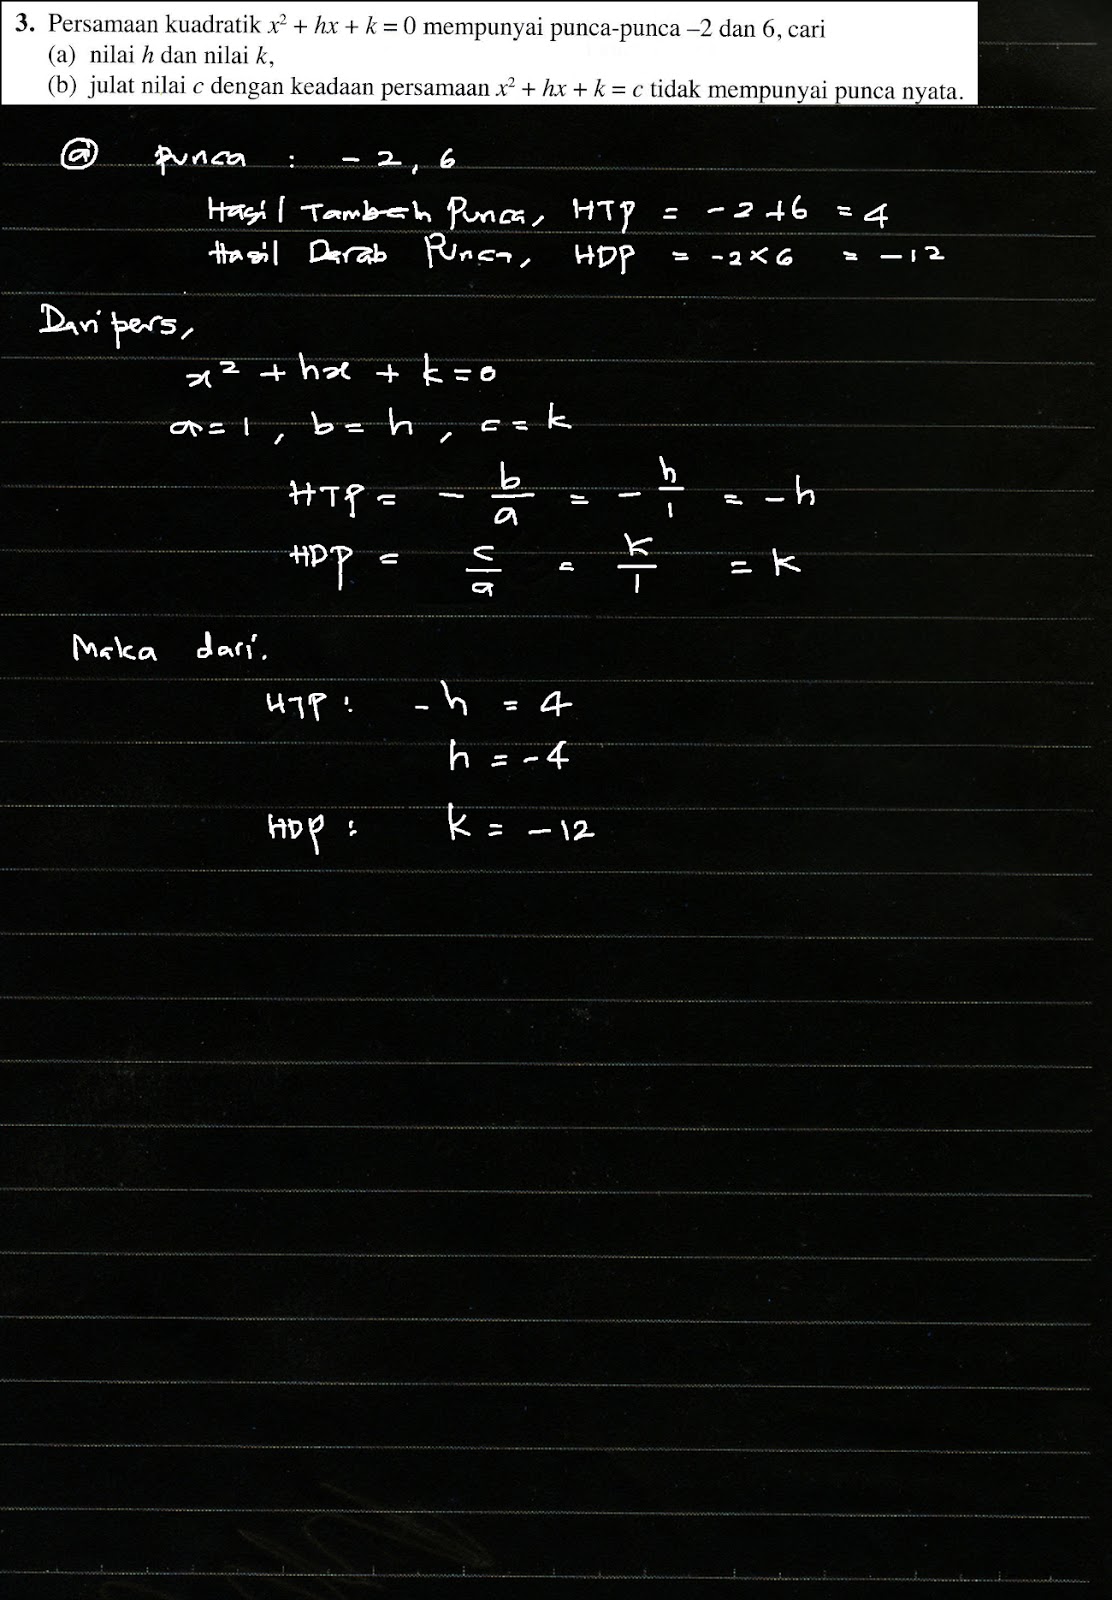 3. Persamaan kuadratik x² + hx + k = 0 mempunyai punca-punca –2 dan 6, cari
(a) nilai h dan nilai k,
(b) julat nilai c dengan keadaan persamaan x² + hx + k = c tidak mempunyai punca nyata.
(a) Punca : - 2, 6
Hasil Tambah Punca, HTP = -2 + 6 = 4
Hasil Darab Punca, HDP = -2 × 6 = -12
Dari pers,
x² + hx + k = 0
a = 1, b = h, c = k
HTP = - b/a = - h/1 = -h
HDP = c/a = k/1 = k
Maka dari.
HTP : -h = 4
h = -4
HDP : k = -12